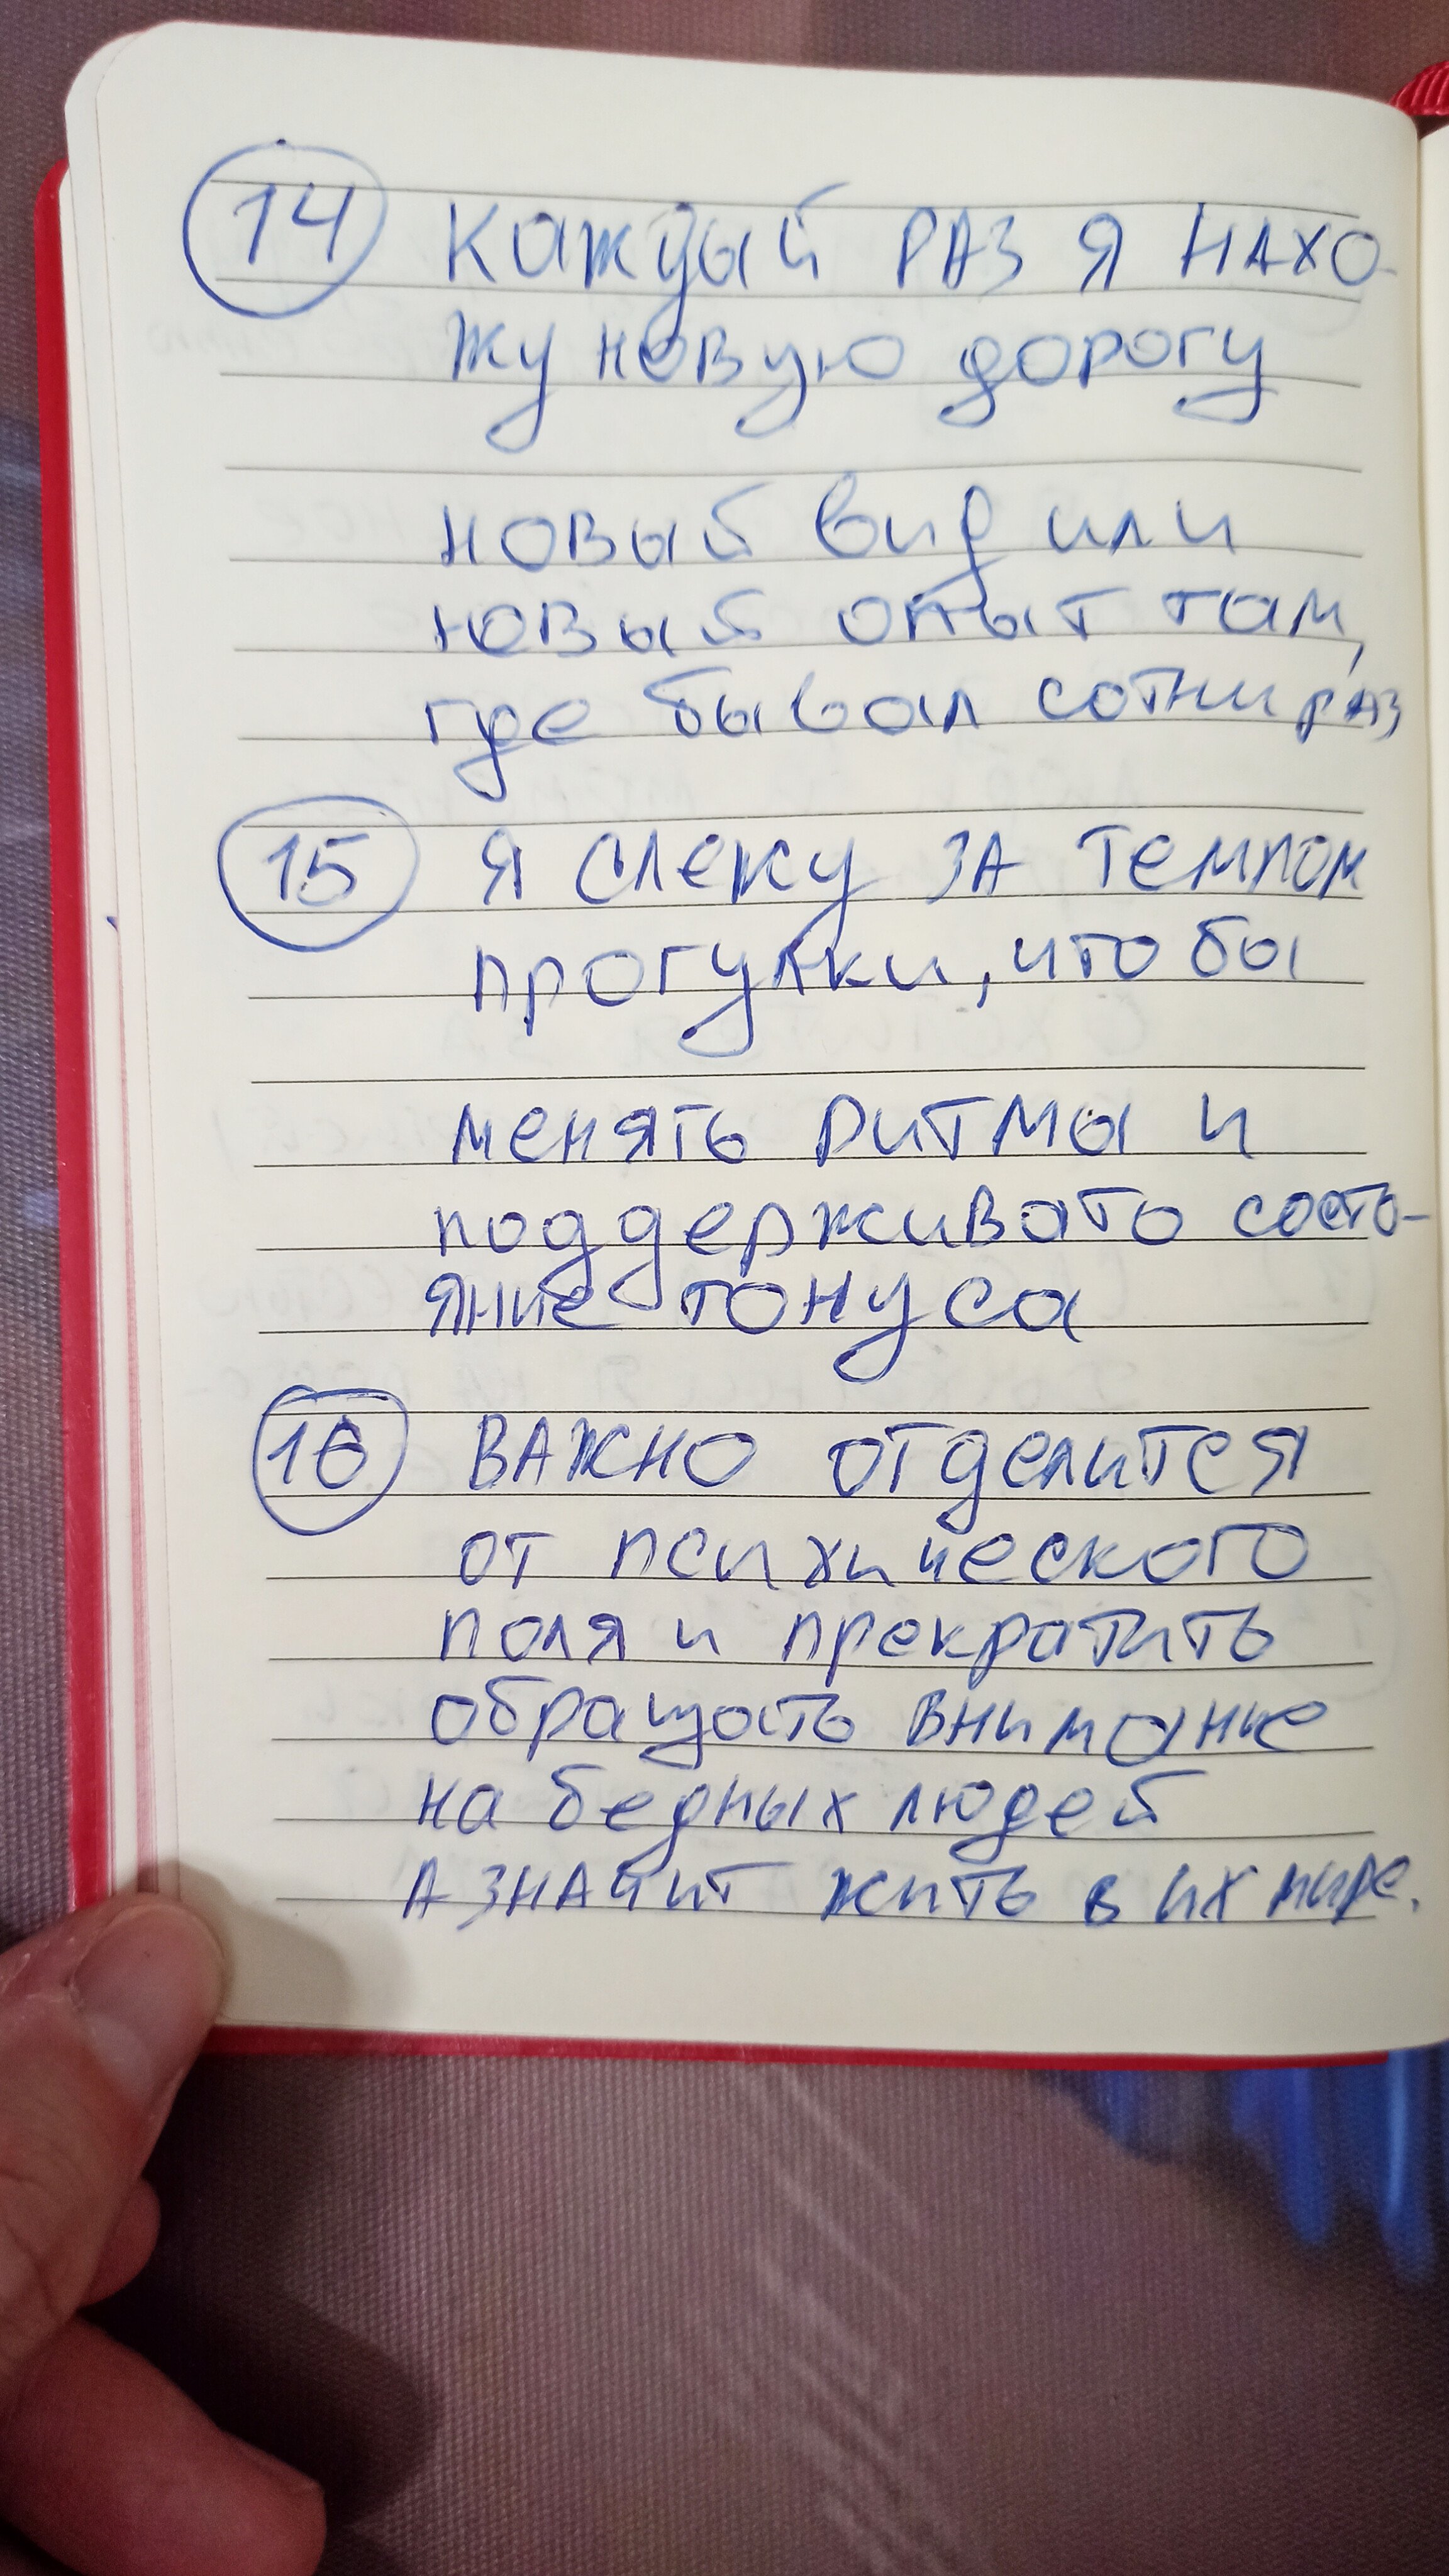 14 Каждый РАЗ Я НАХО-
жу новую дорогу
новый вид или
новый опыт там,
где бывал сотни раз
15 Я слежу ЗА Темпом
прогулки, что бы
менять ритмы и
поддерживать состо-
яние тонуса
16 ВАЖНО отделится
от психического
поля и прекратить
обращать внимание
на бедных людей
А ЗНАЧИТ жить в их мире.